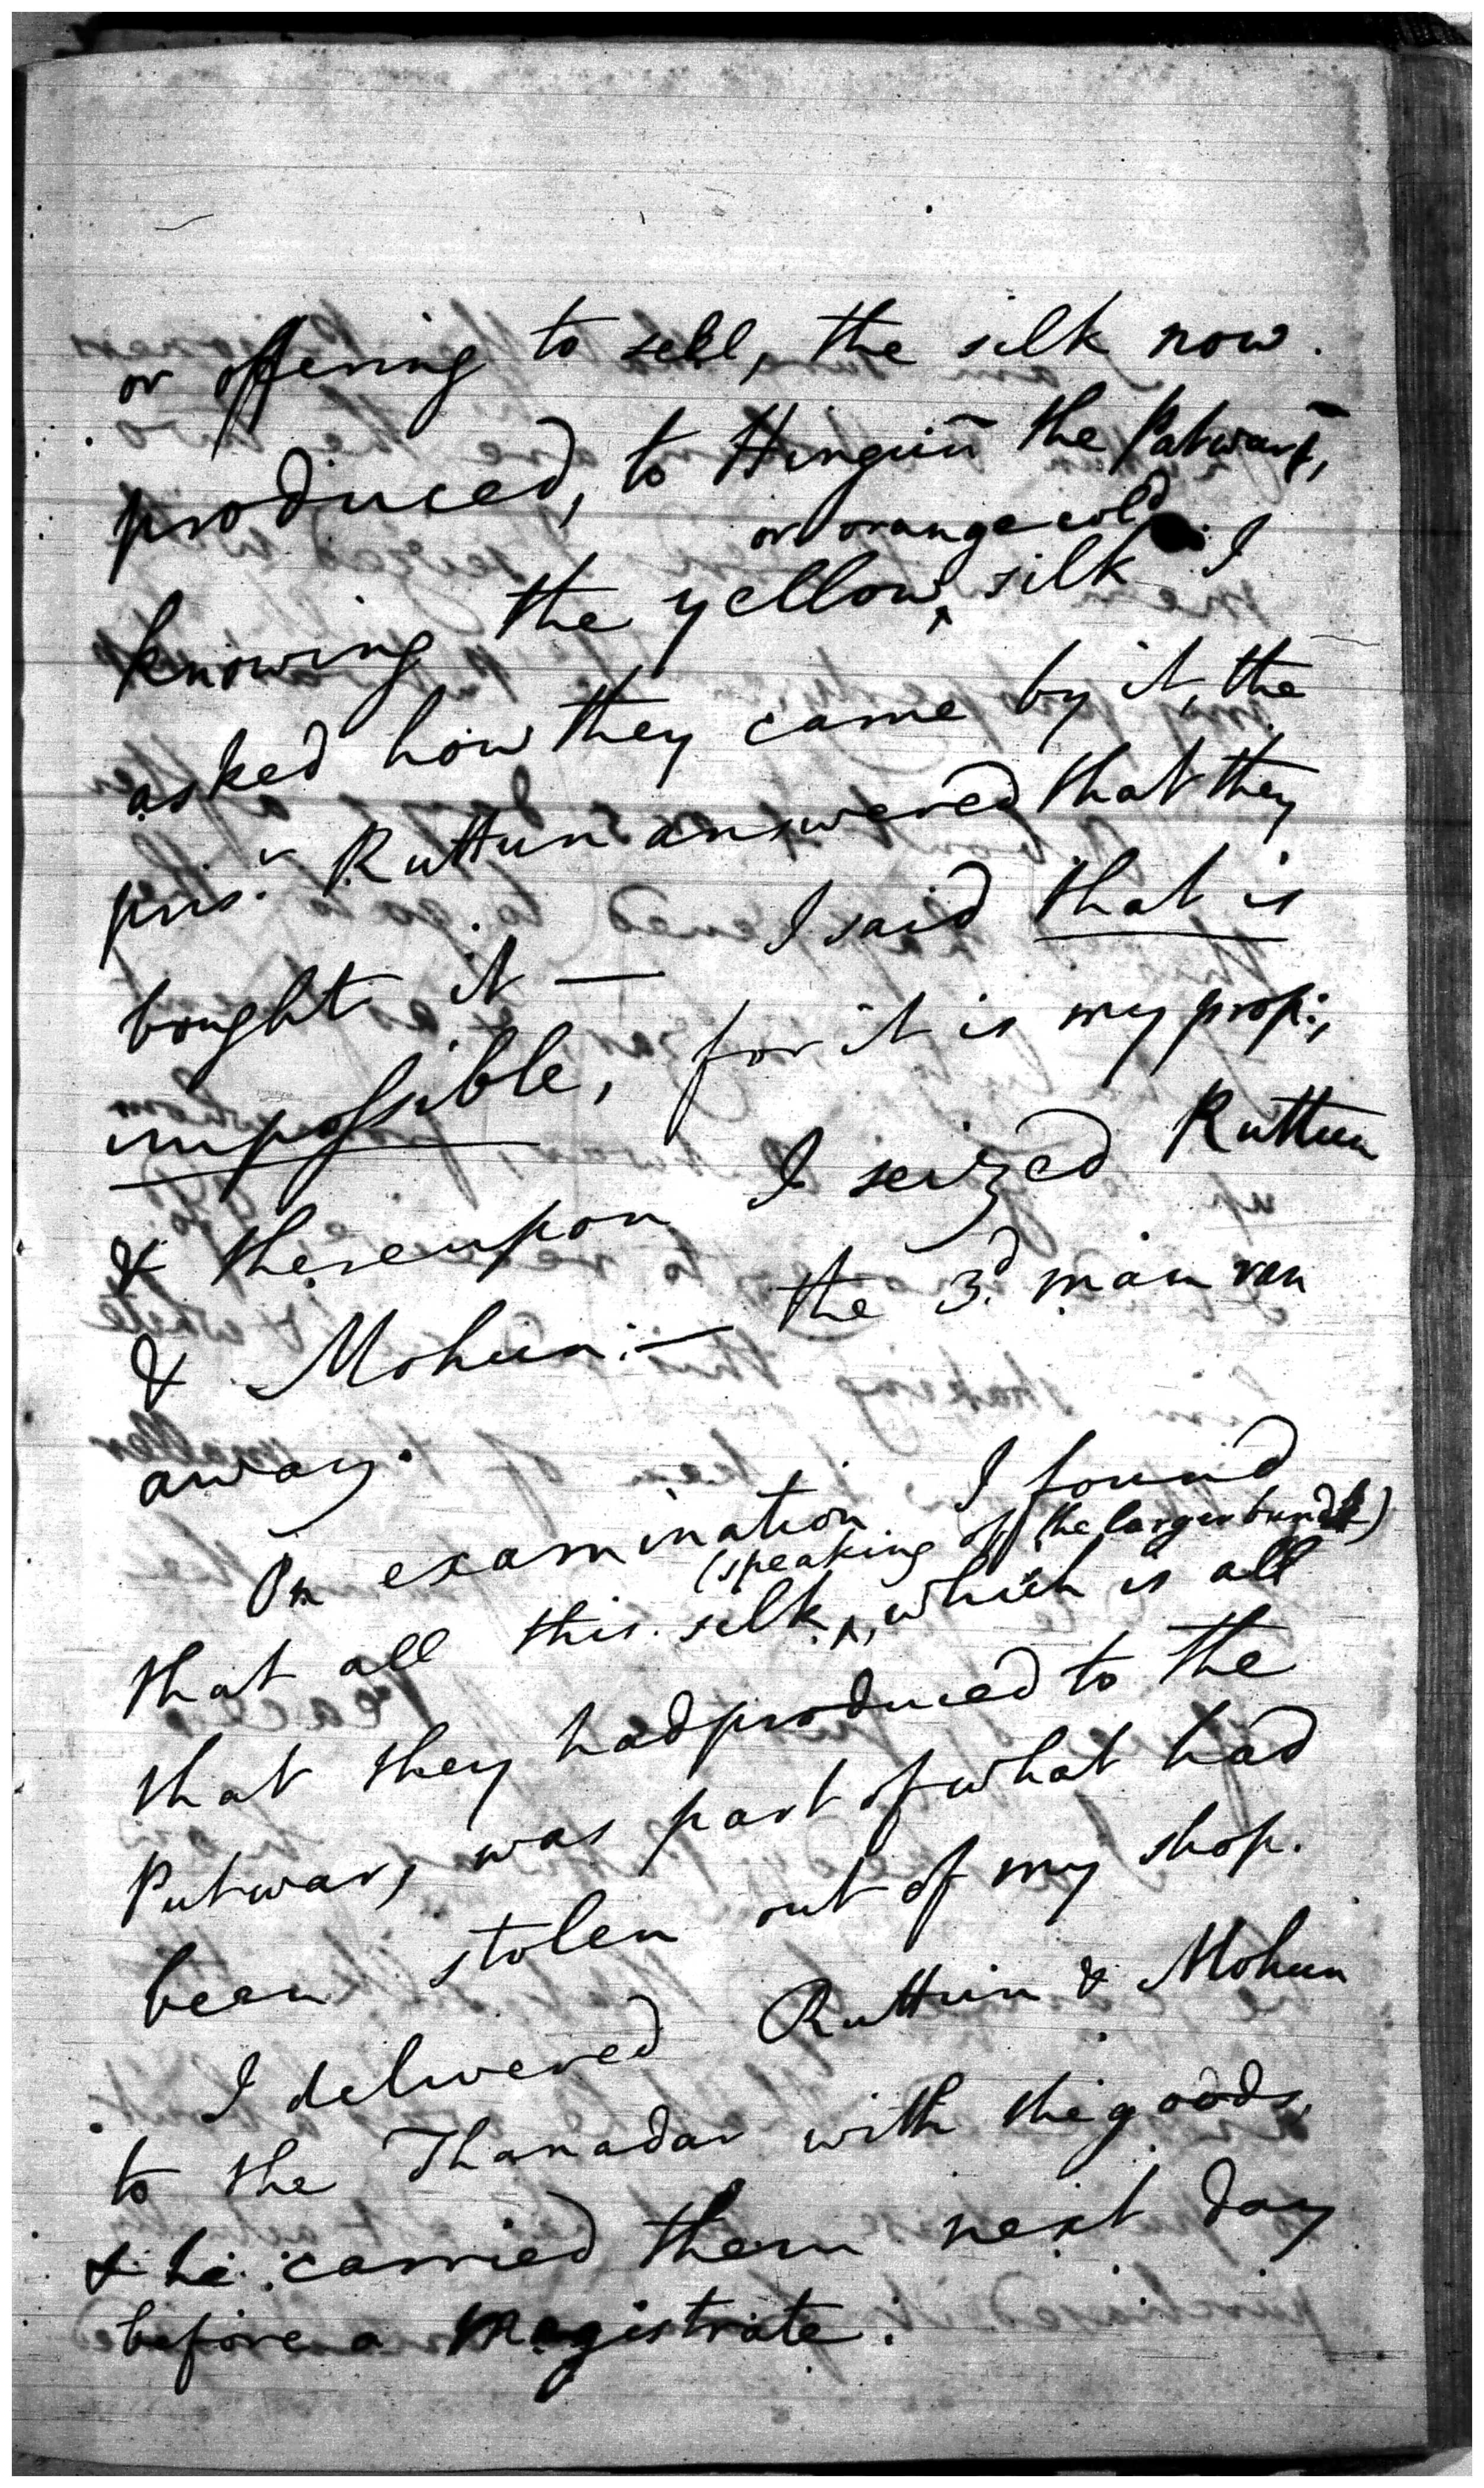 or offering to sell, the silk now
produced, to Hinguin the Putwar,
or orange cold
knowing the yellow ^ silk I
asked how they came by it, the
pris.r Ruttun answered that they
bought it — I said that is
impossible, for it is my prop:,
& thereupon I seized Ruttun
& Mohun:— the 3.d man ran
away.
On examination I found
(speaking of the larger bundle)
that all this silk ^, which is all
that they had produced to the
Putwar, was part of what had
been stolen out of my shop.
I delivered Ruttun & Mohun
to the Thanadar with the goods,
& he carried them next day
before a Magistrate.